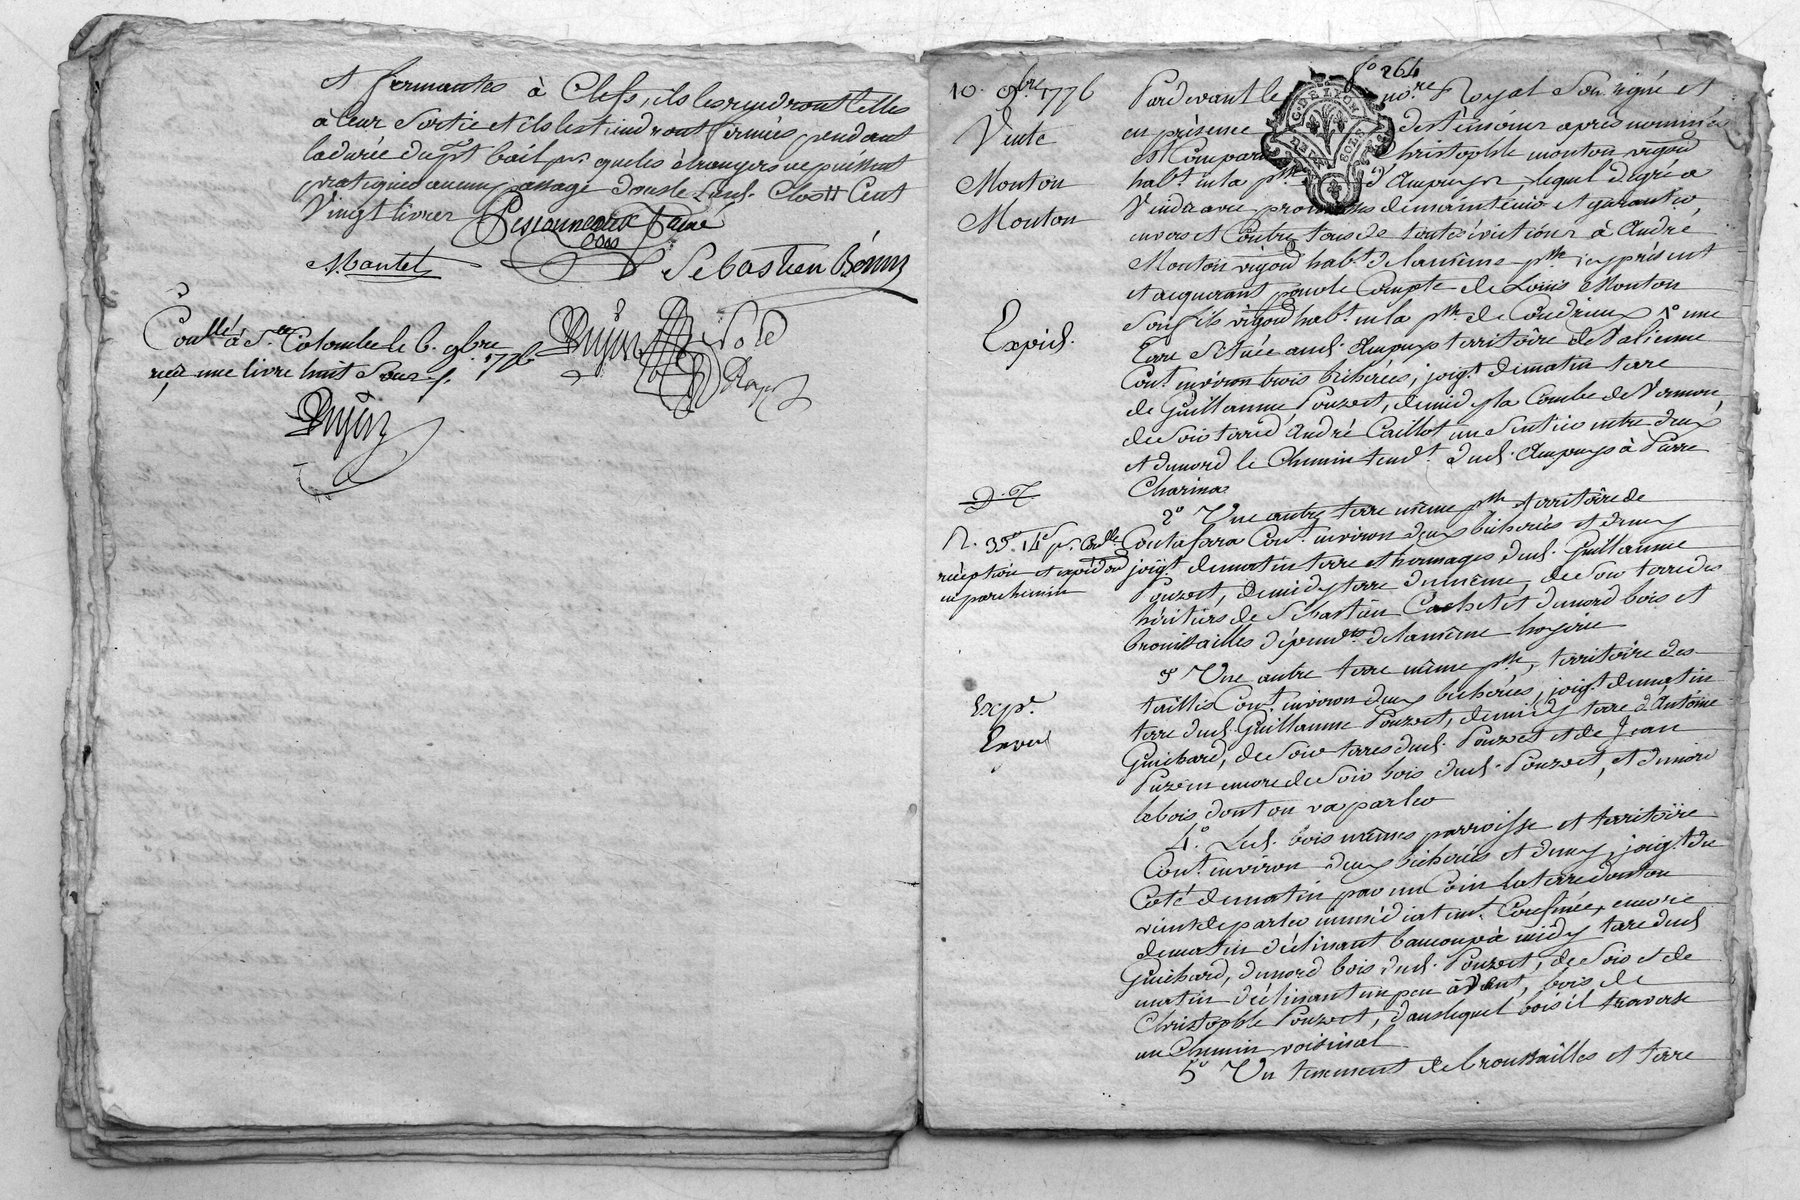 et fermantes à Clefs, ils les rendront telles
à leur Sortie et ils les tiendront fermées pendant
la durée du pst bail pr que les étrangers ne puissent
pratiquer aucun passage dans le Susd. Clos Cent
Vingt livres
Pessonneaux
Mantel
Sebastien Bénn
Conllé à Ste Colombe le 6. 9bre 1776
reçu une livre huit Sous
Dujon
Dujon
No re
Royal
fo 264
10. 9bre 1776
Vente
Mouton
Mouton
Expéd.
R. 35s 14d pr Conlle
réception et expéd on
en parchemin
Exp.
Pardevant le nore Royal Soussigné et
en présence des témoins après nommés
est Comparu Christophle mouton vigon
habt en la psse d'Ampuys, lequel de gré a
Vendu avec promesses de maintenir et garantir
envers et Contre tous de toutes évictions à André
Mouton vigon habt de la même psse icy présent
et acquerant pour le Compte de Louis Mouton
Son fils vigon habt en la psse de Condrieux 1o une
Terre Située aud. Ampuys territoire de
Cont. environ trois bicherées, joigt de matin terre
de Guillaume Pouzet, de midy la Combe de Vernon,
de Soir terre d'André Caillot un Sentier entre deux
et de nord le Chemin tendt dud. Ampuys à Pierre
Charina
2o Une autre terre même psse et territoire de
Contafara Cont. environ deux bicherées et demy
joigt de matin terre et hermages dud. Guillaume
Pouzet, de midy terre du même, de Soir terre des
héritiers de Sébastien Cachet et de nord bois et
broussailles dépendtes de la même hoyrie
3o Une autre terre même psse, territoire des
taillis Cont. environ deux bicherées, joigt de matin
terre dud. Guillaume Pouzet, de midy terre d'Antoine
Guichard, de Soir terres dud. Pouzet et de Jean
Puzin encore de Soir bois dud. Pouzet, et de nord
le bois dont on va parler
4o. Led. bois même parroisse et territoire
Cont. environ deux bicherées et demy, joigt du
Coté de matin par un Coin la terre dont on
vient de parler immédiatemt Confinée, encore
de matin déclinant beaucoup à midy terre dud.
Guichard, de nord bois dud. Pouzet, de Soir et de
matin déclinant un peu à Vent, bois de
Christophle Pouzet, dans lequel bois il traverse
un Chemin voisinal
5o Un tenement de broussailles et terre